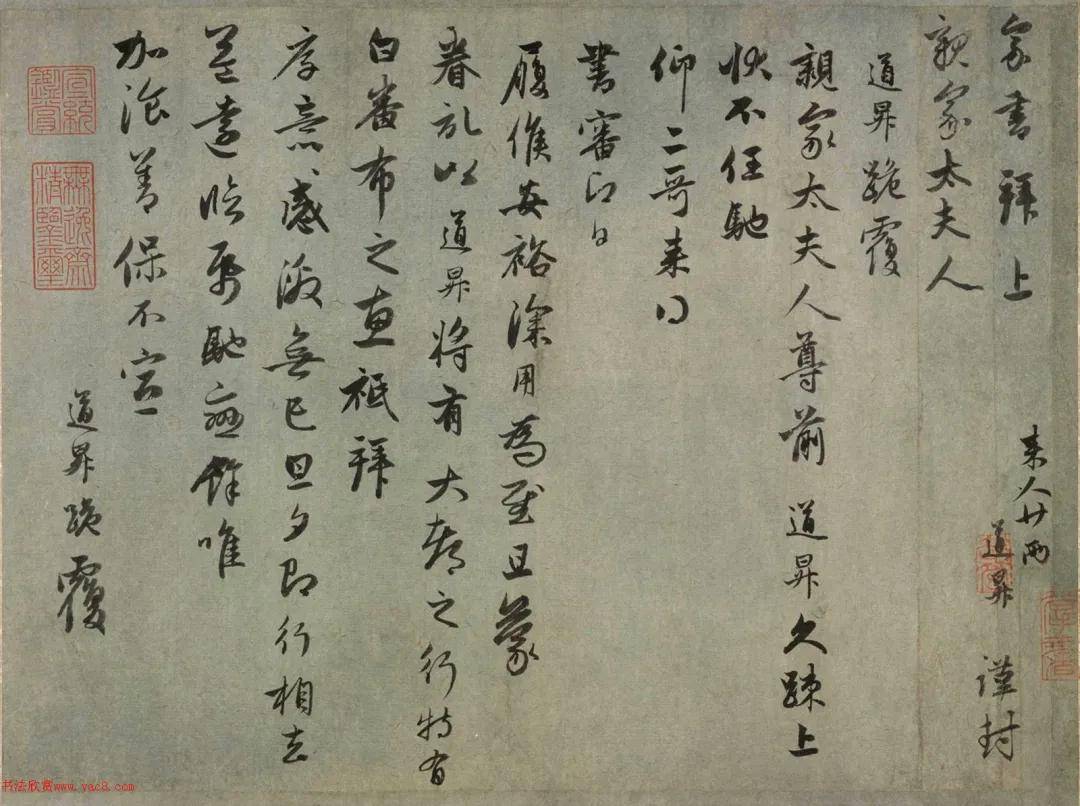 家書拜上
親家太夫人
來人廿兩
道昇 謹封
道昇跪覆
親家太夫人尊前 道昇久疎上
狀不任馳
仰二哥來得
書審即日
履候安裕深用為慰且蒙
眷記以道昇將有大都之行特有
白番布之惠祗拜
厚意感激無已旦夕即行相去
益遠臨紙馳戀餘唯
加飡善保不宣
道昇跪覆
宣統鑑賞
無逸齋精鑒璽
书法欣赏www.yac8.com